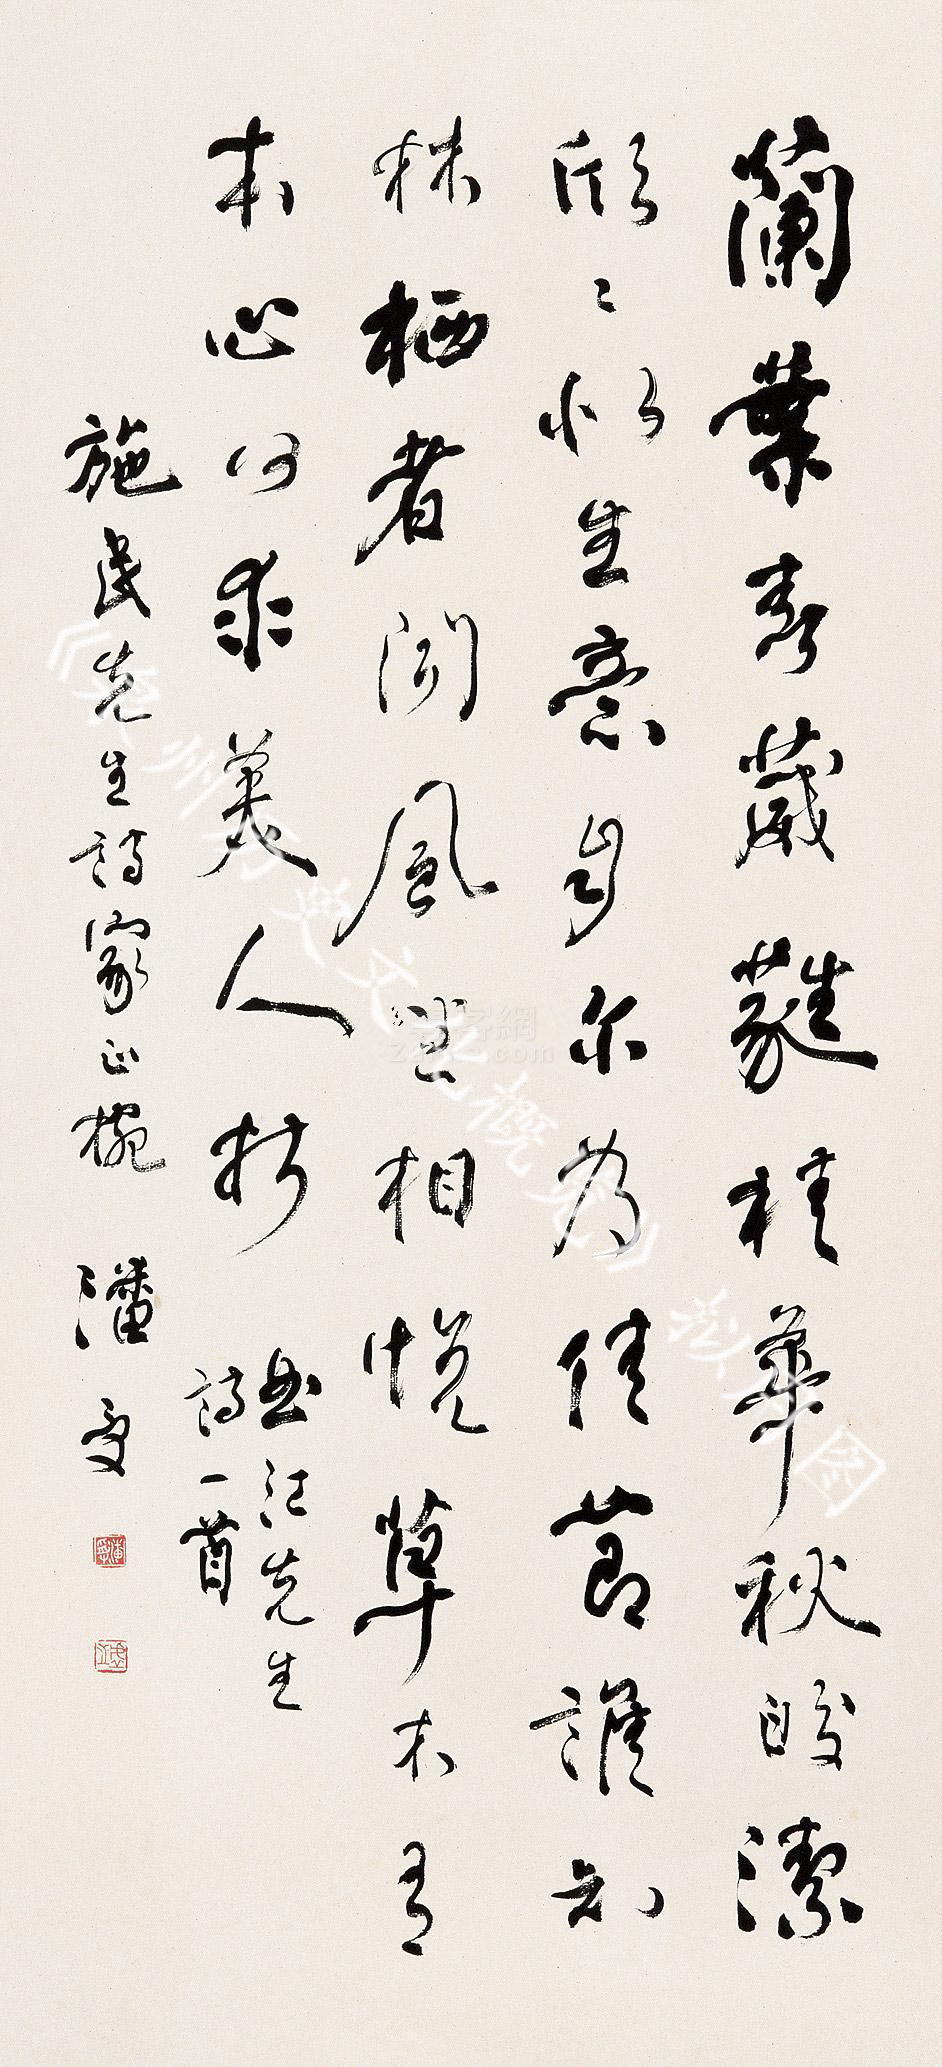 蘭葉春葳蕤桂華秋皎潔
欣〻此生意自尔為佳節誰知
林栖者聞風坐相悅草木有
本心何求美人折
曲江先生
詩一首
施民先生詩家正腕 潘受
州历史文化概览》